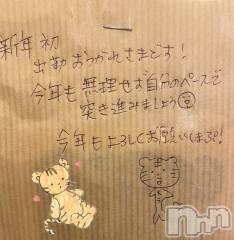 新年初
出勤おつかれさまです！
今年も無理せず自分のペースで
突き進みましょう
今年もよろしくお願いしまぷ！